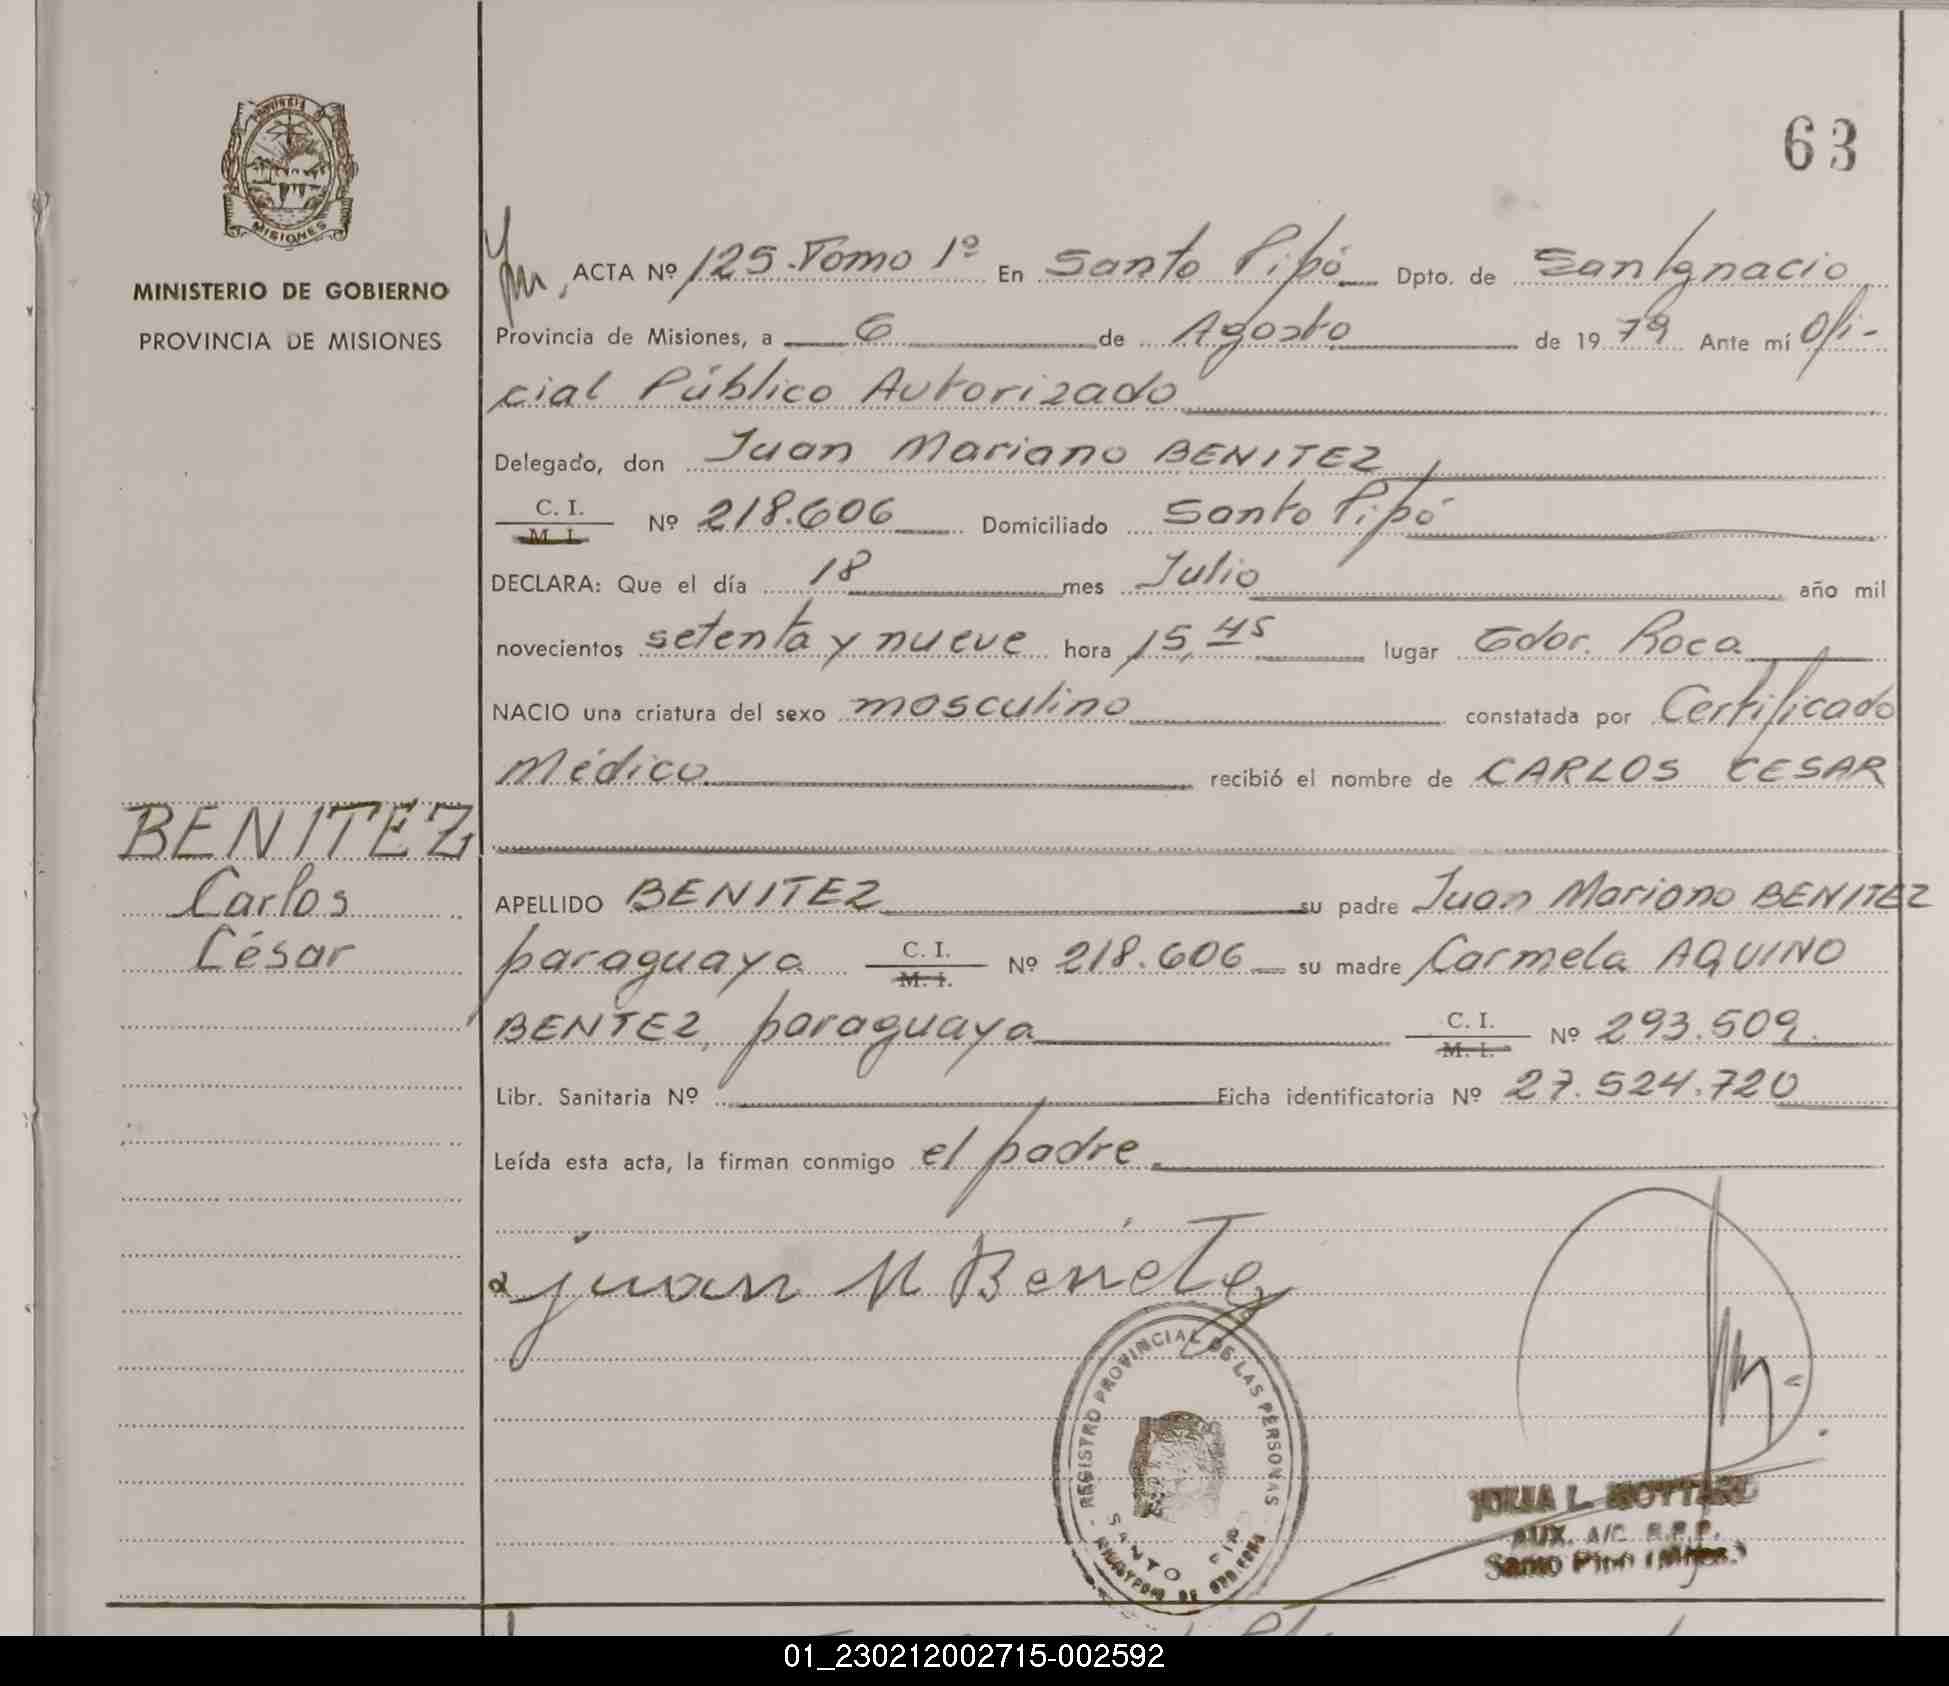 63
PROVINCIA
MISIONES
MINISTERIO DE GOBIERNO
PROVINCIA DE MISIONES
BENITEZ
Carlos
César
ACTA Nº 125 Tomo 1º En Santo Pipó Dpto. de San Ignacio
Provincia de Misiones, a 6 de Agosto de 1979 Ante mí Ofi-
cial Público Autorizado
Delegado, don Juan Mariano BENITEZ
C. I.
M. I. Nº 218.606 Domiciliado Santo Pipó
DECLARA: Que el día 18 mes Julio año mil
novecientos setenta y nueve hora 15,45 lugar Gdor. Roca
NACIO una criatura del sexo masculino constatada por Certificado
Médico recibió el nombre de CARLOS CESAR
APELLIDO BENITEZ su padre Juan Mariano BENITEZ
paraguaya C. I. M. I. Nº 218.606 su madre Carmela AQUINO
BENTEZ, paraguaya C. I. M. I. Nº 293.509
Libr. Sanitaria Nº Ficha identificatoria Nº 27.524.720
Leída esta acta, la firman conmigo el padre
juan M Benitez
REGISTRO PROVINCIAL DE LAS PERSONAS
SANTO PIPO
JULIA L.
AUX. A/C R.P.P.
Santo Pipó (Mnes.)
01_230212002715-002592